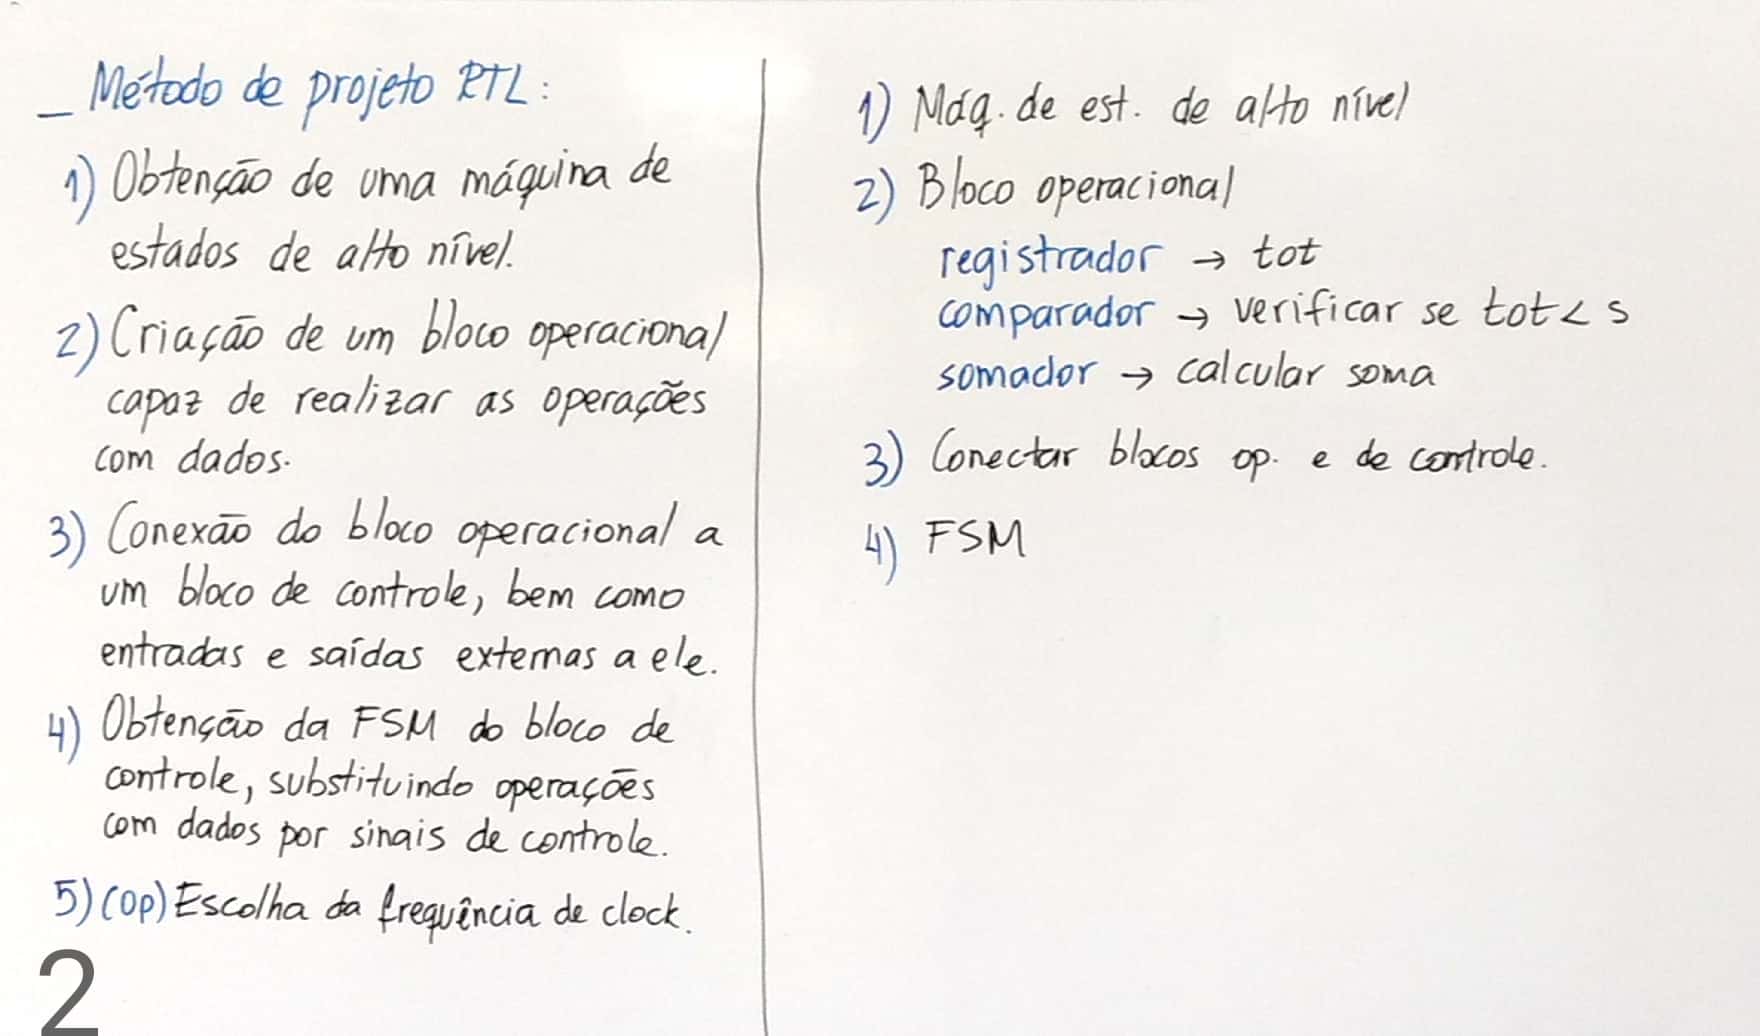 _ Método de projeto RTL:
1) Obtenção de uma máquina de
estados de alto nível.
2) Criação de um bloco operacional
capaz de realizar as operações
com dados.
3) Conexão do bloco operacional a
um bloco de controle, bem como
entradas e saídas externas a ele.
4) Obtenção da FSM do bloco de
controle, substituindo operações
com dados por sinais de controle.
5) (op) Escolha da frequência de clock.
2
1) Máq. de est. de alto nível
2) Bloco operacional
registrador → tot
comparador → verificar se tot < s
somador → calcular soma
3) Conectar blocos op. e de controle.
4) FSM